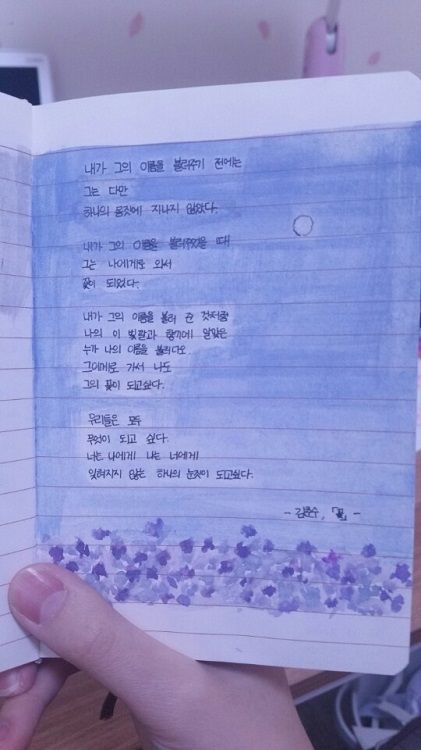 내가 그의 이름을 불러주기 전에는
그는 다만
하나의 몸짓에 지나지 않았다.
내가 그의 이름을 불러주었을 때
그는 나에게로 와서
꽃이 되었다.
내가 그의 이름을 불러 준 것처럼
나의 이 빛깔과 향기에 알맞은
누가 나의 이름을 불러다오
그에게로 가서 나도
그의 꽃이 되고싶다.
우리들은 모두
무엇이 되고 싶다.
너는 나에게 나는 너에게
잊혀지지 않는 하나의 눈짓이 되고싶다.
- 김춘수, 「꽃」 -